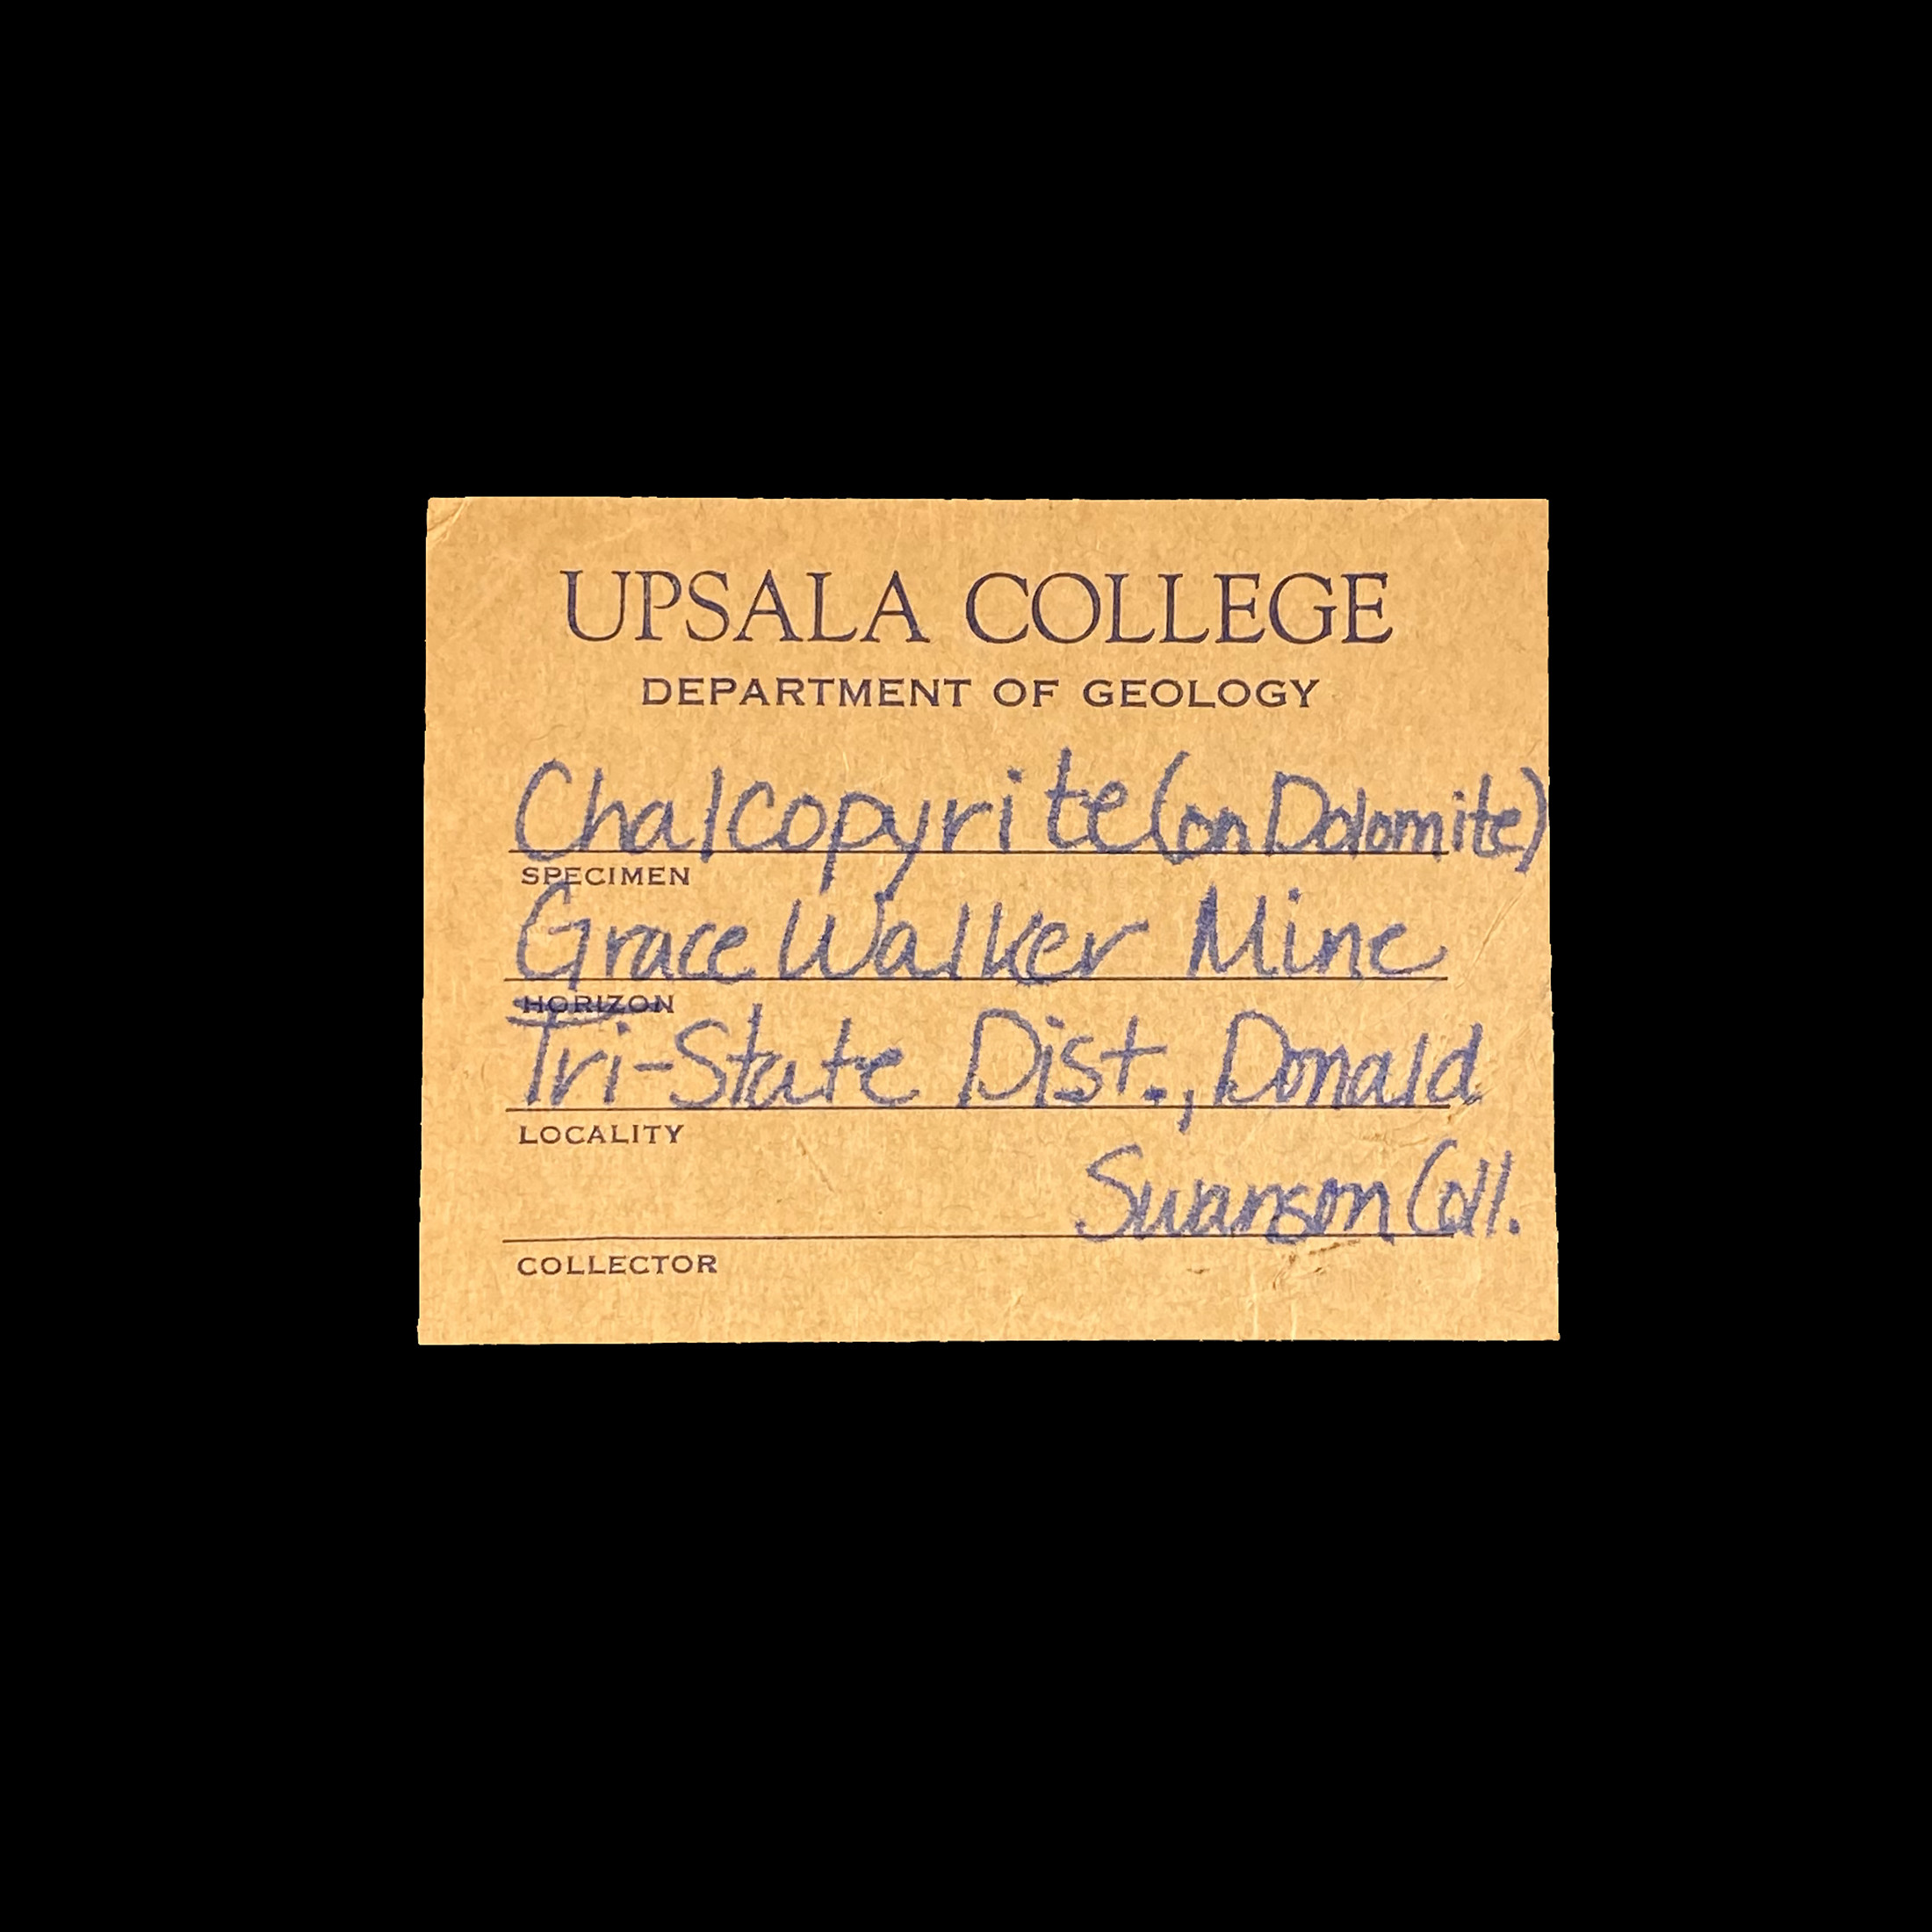 UPSALA COLLEGE
DEPARTMENT OF GEOLOGY
Chalcopyrite (on Dolomite)
SPECIMEN
Grace Walker Mine
HORIZON
Tri-State Dist., Donald
LOCALITY
Swanson Coll.
COLLECTOR